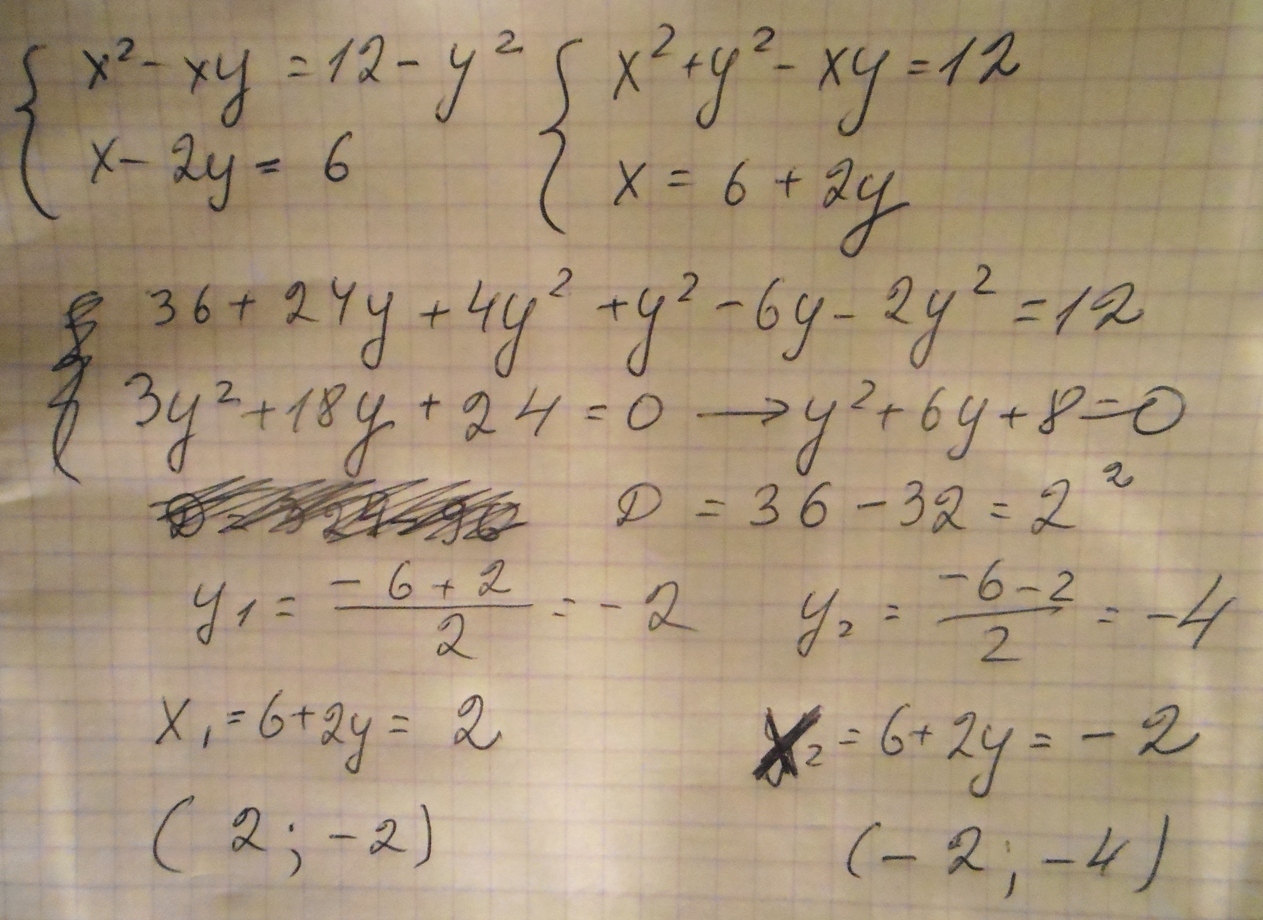 x² - xy = 12 - y² x² + y² - xy = 12
x - 2y = 6 x = 6 + 2y
36 + 24y + 4y² + y² - 6y - 2y² = 12
3y² + 18y + 24 = 0 → y² + 6y + 8 = 0
D = 36 - 32 = 2²
y₁ = (-6 + 2)/2 = -2 y₂ = (-6 - 2)/2 = -4
x₁ = 6 + 2y = 2 x₂ = 6 + 2y = -2
(2; -2) (-2; -4)